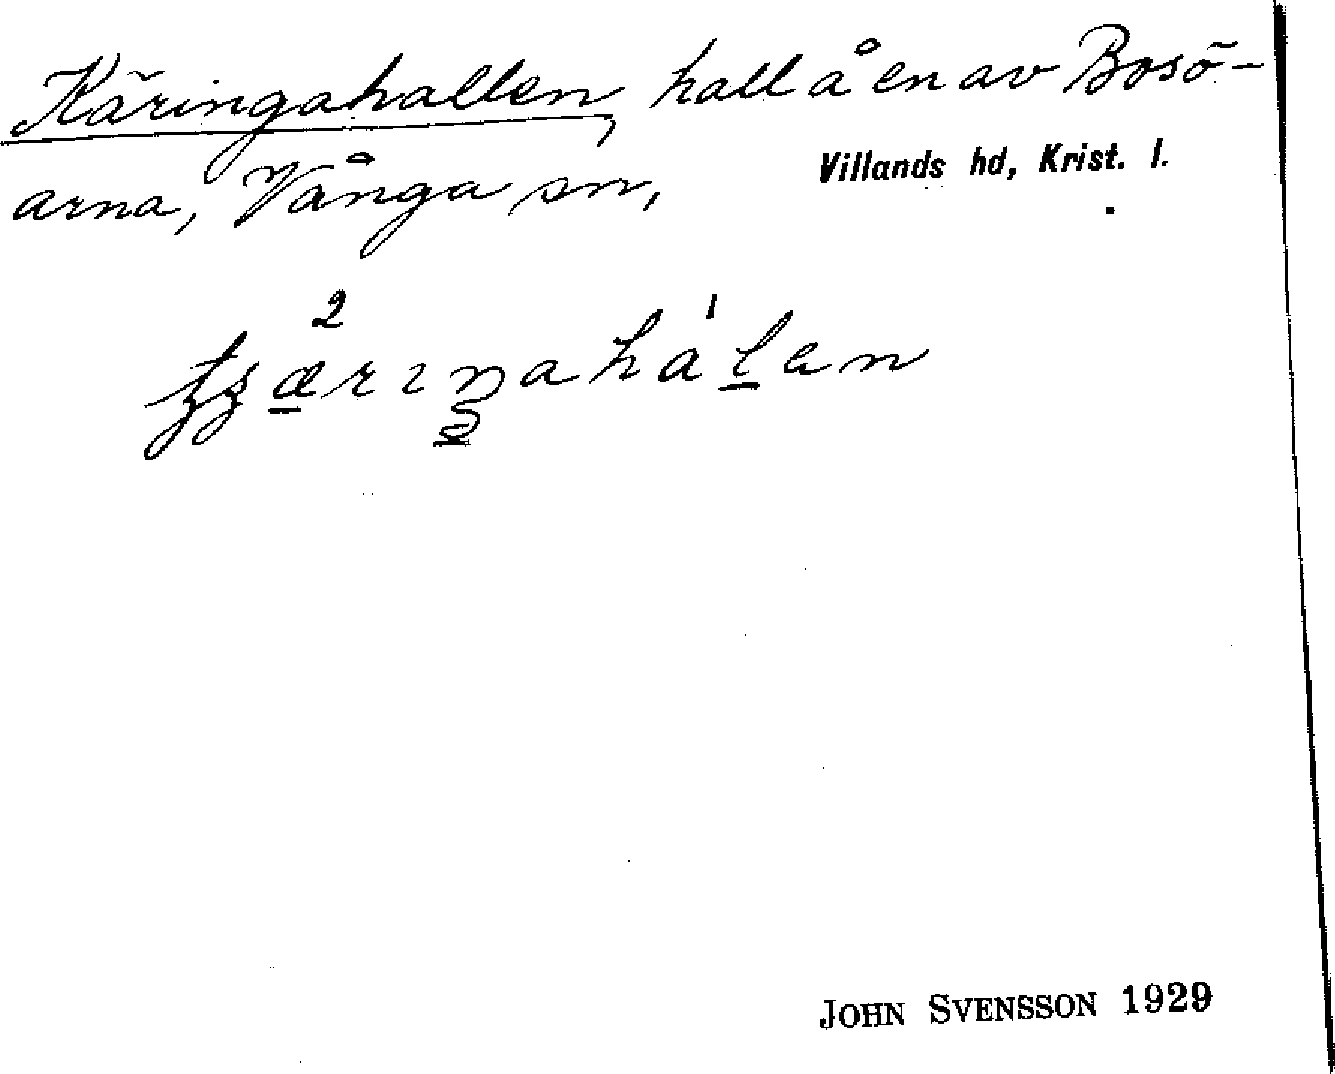 Käringahallen, hall å en av Bosö-
arna, Vånga sn, Villands hd, Krist. l.
John Svensson 1929